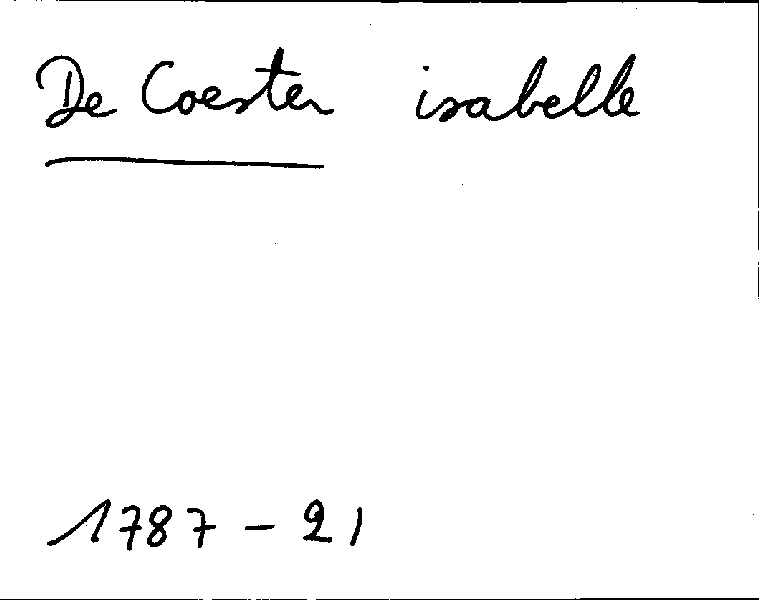 De Coester isabelle
1787 - 21